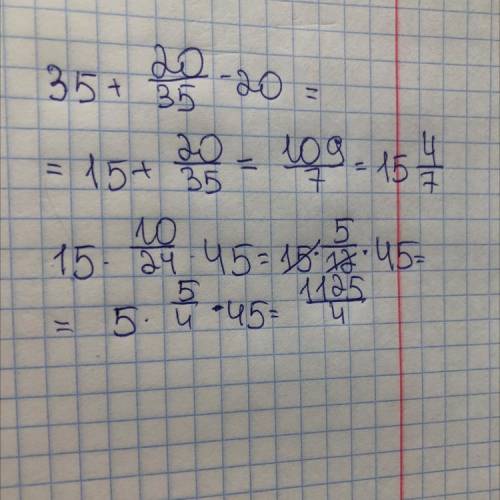 35 + 20/35 - 20 =
= 15 + 20/35 = 109/7 = 15 4/7
15 · 10/24 · 45 = 15 · 5/12 · 45 =
= 5 · 5/4 · 45 = 1125/4